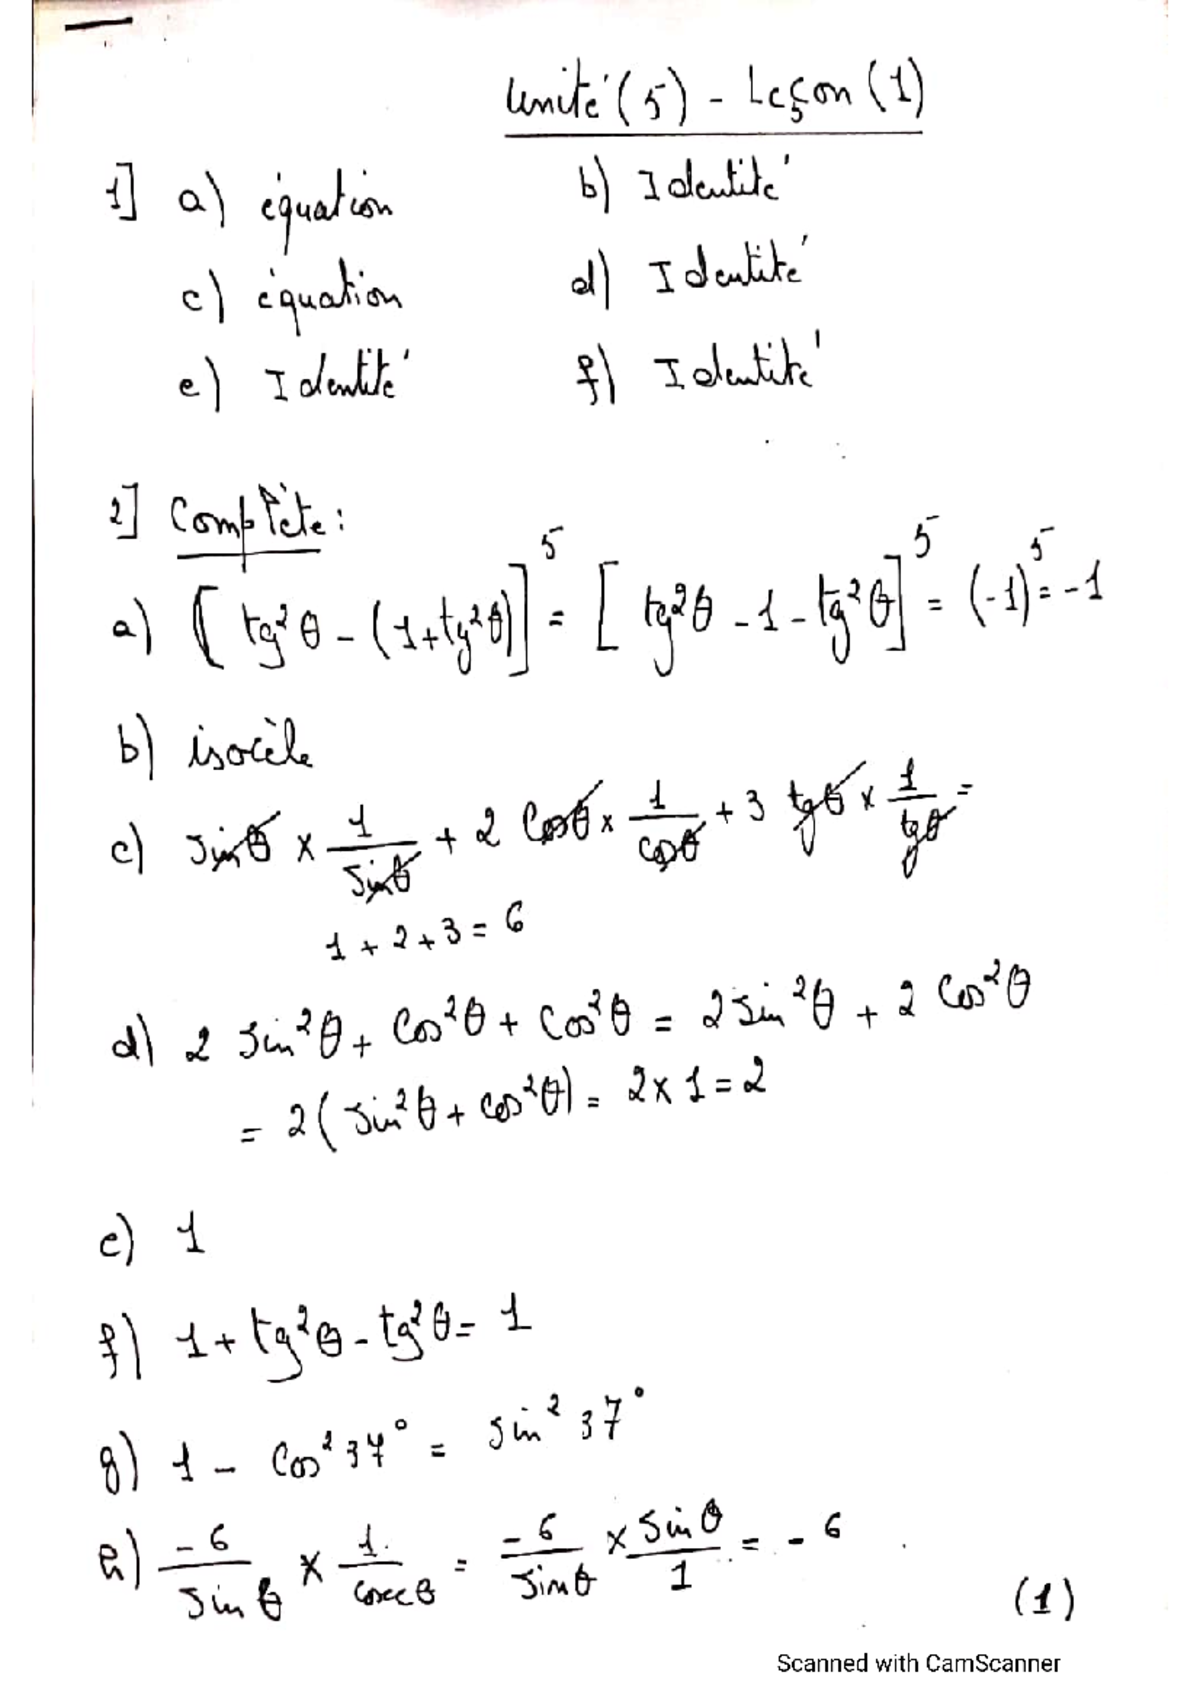 Unité (5) - Leçon (1)
1] a) équation b) Identité
c) équation d) Identité
e) Identité f) Identité
2] Complète:
a) [tg²θ - (1+tg²θ)]⁵ = [tg²θ - 1 - tg²θ]⁵ = (-1)⁵ = -1
b) isocèle
c) sinθ × 1/sinθ + 2 cosθ × 1/cosθ + 3 tgθ × 1/tgθ =
1 + 2 + 3 = 6
d) 2 sin²θ + cos²θ + cos²θ = 2 sin²θ + 2 cos²θ
= 2(sin²θ + cos²θ) = 2 × 1 = 2
e) 1
f) 1 + tg²θ - tg²θ = 1
g) 1 - cos² 37° = sin² 37°
h) -6/sinθ × 1/cosecθ = -6/sinθ × sinθ/1 = -6
(1)
Scanned with CamScanner